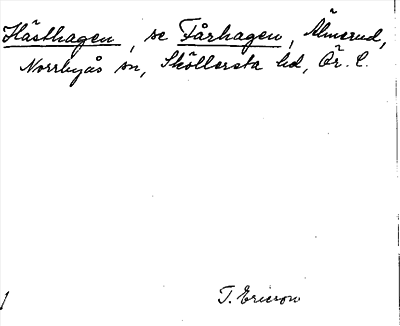 Hästhagen, se Fårhagen, Älmerud,
Norrbyås sn, Sköllersta hd, Ör. l.
T. Ericson